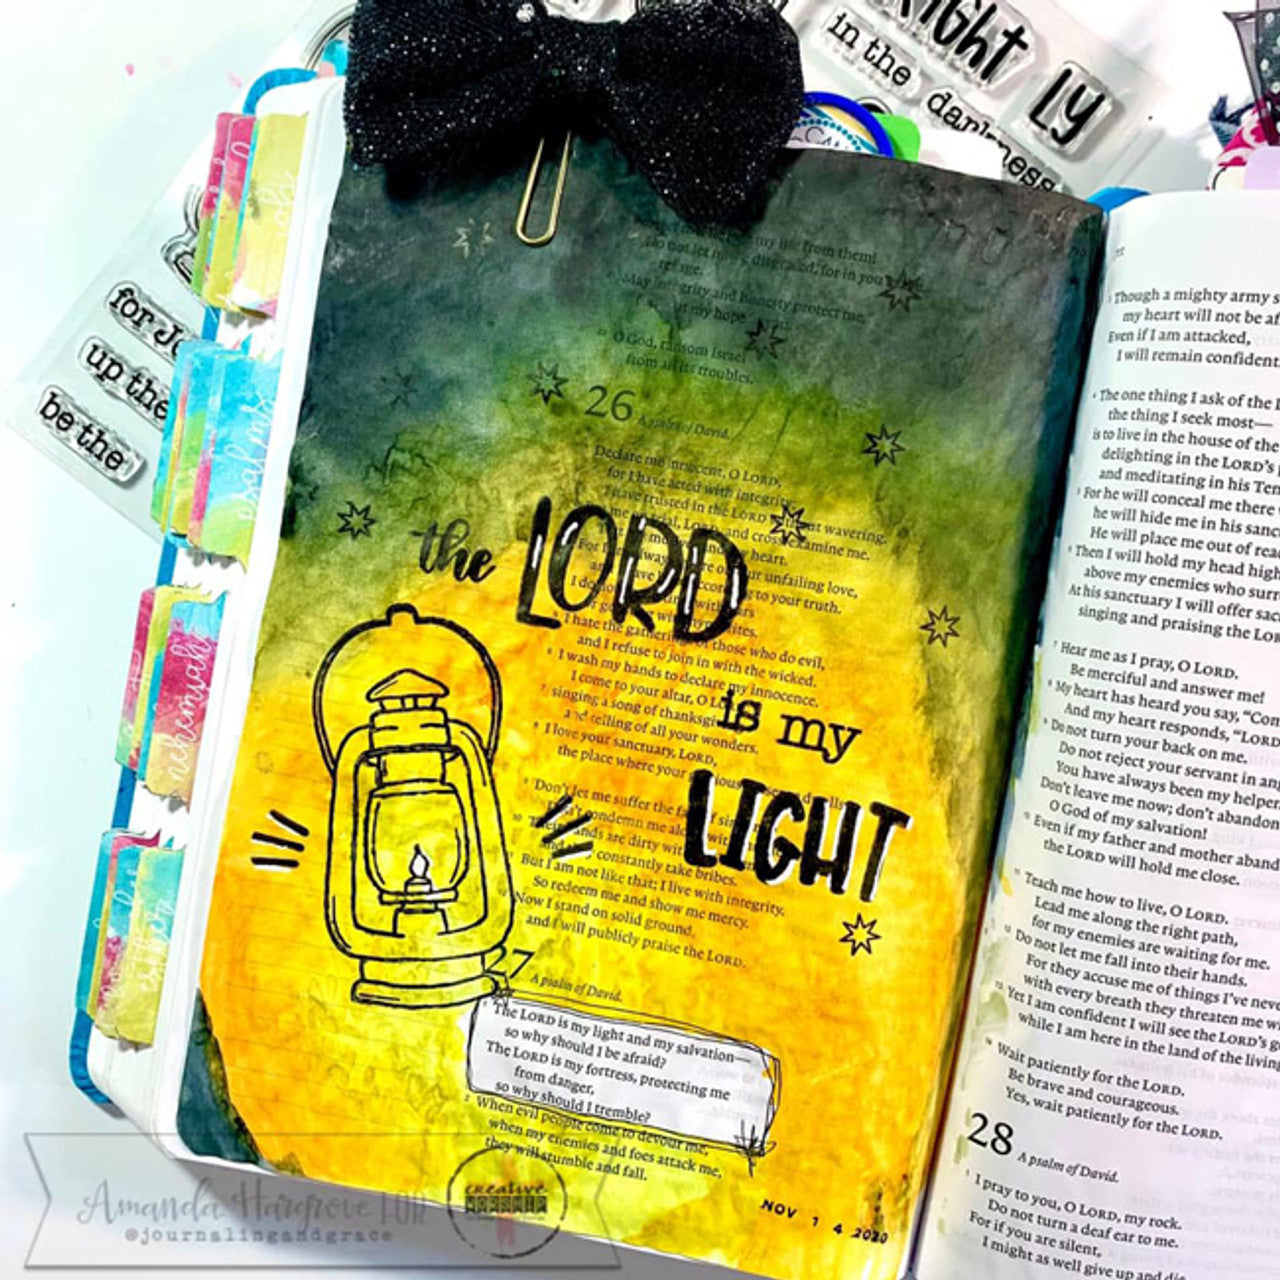 ight
LY
in the
darkness
for Jo
up the
be the
psalms
nehemiah
esther
my life from them!
Do not let me be disgraced, for in you
refuge.
May integrity and honesty protect me,
my hope
O God, ransom Israel
from all its troubles.
26
A psalm of David.
Declare me innocent, O LORD,
for I have acted with integrity;
I have trusted in the LORD without wavering.
LORD, and cross-examine me.
my heart.
your unfailing love,
according to your truth.
I do
hypocrites.
I hate the gatherings of those who do evil,
and I refuse to join in with the wicked.
I wash my hands to declare my innocence.
I come to your altar, O LORD,
singing a song of thanksgiving
and telling of all your wonders.
I love your sanctuary, LORD,
the place where your glorious presence dwells.
Don't let me suffer the fate of sinners.
condemn me along with
Their hands are dirty with
and they constantly take bribes.
But I am not like that; I live with integrity.
So redeem me and show me mercy.
Now I stand on solid ground,
and I will publicly praise the LORD.
the LORD
is my
LIGHT
7
A psalm of David.
1 The LORD is my light and my salvation—
so why should I be afraid?
The LORD is my fortress, protecting me
from danger,
so why should I tremble?
2 When evil people come to devour me,
when my enemies and foes attack me,
they will stumble and fall.
NOV 14 2020
3 Though a mighty army s
my heart will not be af
Even if I am attacked,
I will remain confident.
4 The one thing I ask of the L
the thing I seek most—
is to live in the house of the
delighting in the LORD's
and meditating in his Tem
5 For he will conceal me there
he will hide me in his sanc
He will place me out of reac
6 Then I will hold my head high
above my enemies who surr
At his sanctuary I will offer sac
singing and praising the Lo
7 Hear me as I pray, O LORD.
Be merciful and answer me!
8 My heart has heard you say, "Com
And my heart responds, "LORD
9 Do not turn your back on me.
Do not reject your servant in an
You have always been my helper
Don't leave me now; don't abandon
O God of my salvation!
10 Even if my father and mother aband
the LORD will hold me close.
11 Teach me how to live, O LORD.
Lead me along the right path,
for my enemies are waiting for me.
12 Do not let me fall into their hands.
For they accuse me of things I've neve
with every breath they threaten me w
13 Yet I am confident I will see the LORD's go
while I am here in the land of the living
14 Wait patiently for the LORD.
Be brave and courageous.
Yes, wait patiently for the LORD.
28
A psalm of David.
1 I pray to you, O LORD, my rock.
Do not turn a deaf ear to me.
For if you are silent,
I might as well give up and di
Amanda Hargrove FOR
@journalingandgrace
creative
WORSHIP